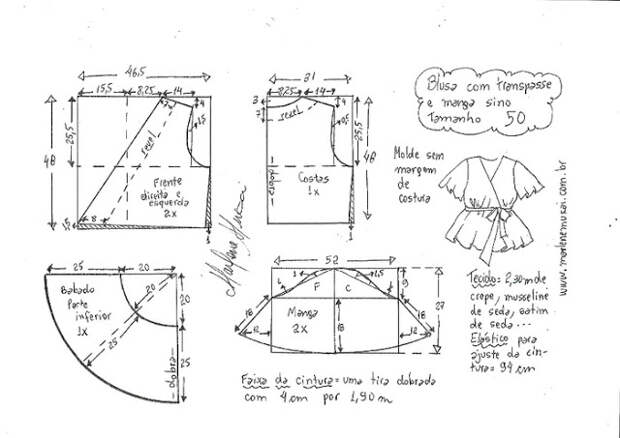 46,5
15,5
8,25
14
4
7
revel
1,5
25,5
48
Frente
direita e
esquerda
2x
1,5
8
1
31
8,25
14
3
7
4
revel
0,5
25,5
48
dobra
Costas
1x
1
Blusa com transpasse
e manga sino
Tamanho 50
Molde sem
margem
de
costura
www.marlenemukai.com.br
Marlene Mukai
25
20
20
20
25
25
Babado
Parte
inferior
1x
dobra
52
F
C
1
1,5
9
27
18
18
18
12
12
Manga
2x
Tecido = 2,30m de
crepe, musseline
de seda, cetim
de seda...
Elástico para
ajuste da cin-
tura = 94 cm
Faixa da cintura = uma tira dobrada
com 4 cm por 1,90 m